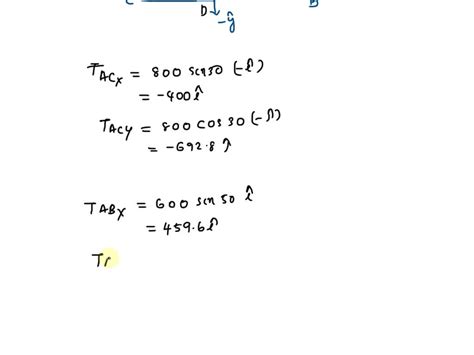 D -ŷ B
T_ACx = 800 sin30 (-î)
= -400 î
T_ACy = 800 cos 30 (-ĵ)
= -692.8 ĵ
T_ABx = 600 sin 50 î
= 459.6 î